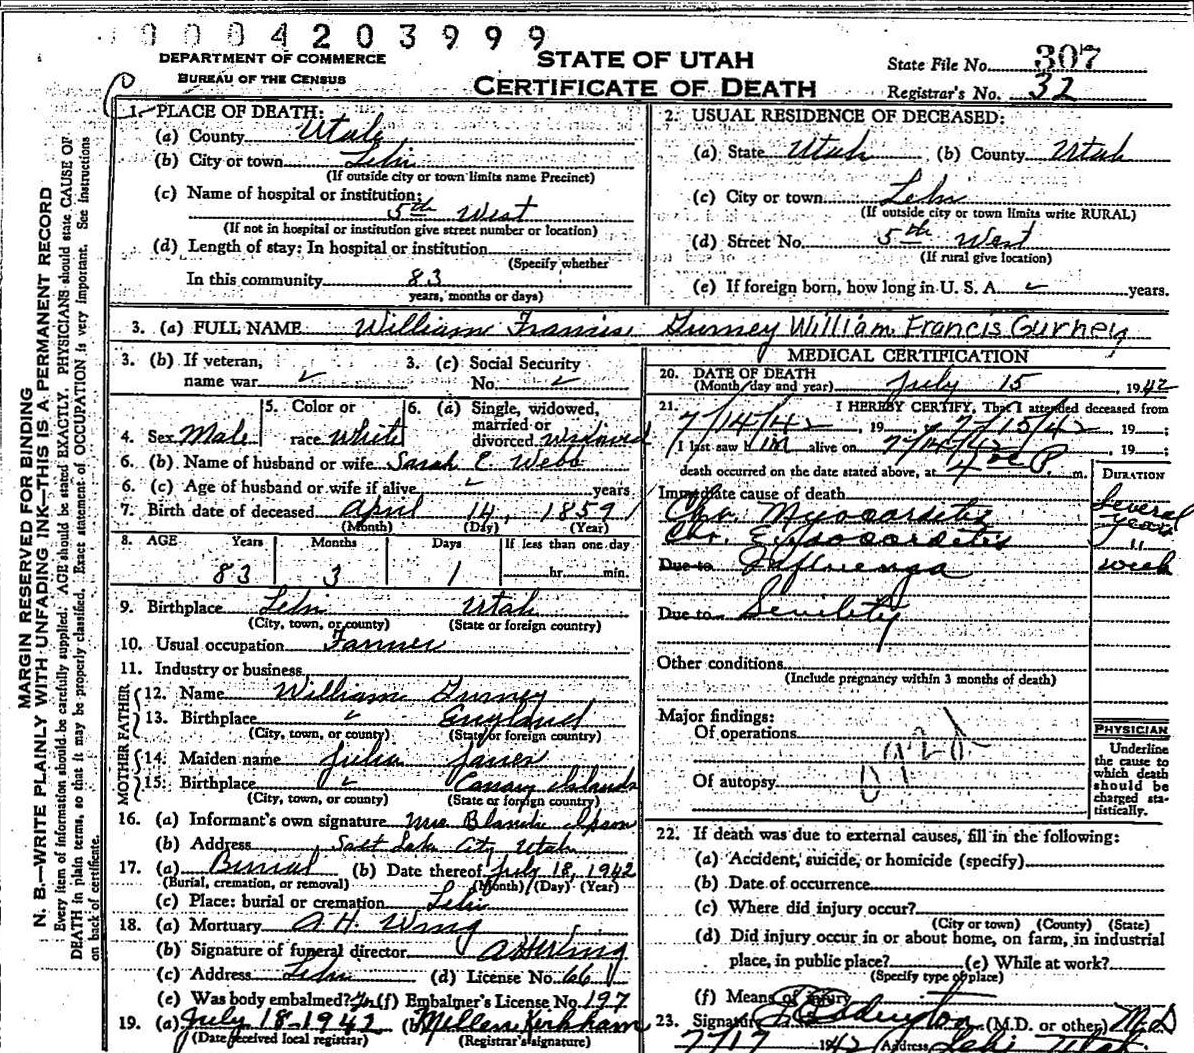 9 0 0 4 2 0 3 9 9 9
DEPARTMENT OF COMMERCE
BUREAU OF THE CENSUS
STATE OF UTAH
CERTIFICATE OF DEATH
State File No. 307
Registrar's No. 32
MARGIN RESERVED FOR BINDING
N. B.—WRITE PLAINLY WITH UNFADING INK—THIS IS A PERMANENT RECORD
Every item of information should be carefully supplied. AGE should be stated EXACTLY. PHYSICIANS should state CAUSE OF
DEATH in plain terms, so that it may be properly classified. Exact statement of OCCUPATION is very important. See instructions
on back of certificate.
1. PLACE OF DEATH:
(a) County Utah
(b) City or town Lehi
(If outside city or town limits name Precinct)
(c) Name of hospital or institution:
5th West
(If not in hospital or institution give street number or location)
(d) Length of stay: In hospital or institution
(Specify whether
In this community 83
years, months or days)
2. USUAL RESIDENCE OF DECEASED:
(a) State Utah (b) County Utah
(c) City or town Lehi
(If outside city or town limits write RURAL)
(d) Street No. 5th West
(If rural give location)
(e) If foreign born, how long in U. S. A. ✓ years.
3. (a) FULL NAME William Francis Gurney William Francis Gurney
3. (b) If veteran, name war ✓
3. (c) Social Security No. ✓
4. Sex Male
5. Color or race White
6. (a) Single, widowed, married or divorced Widowed
6. (b) Name of husband or wife Sarah E. Webb
6. (c) Age of husband or wife if alive ✓ years
7. Birth date of deceased April 14, 1859
(Month) (Day) (Year)
8. AGE Years Months Days If less than one day
83 3 1 hr. min.
9. Birthplace Lehi Utah
(City, town, or county) (State or foreign country)
10. Usual occupation Farmer
11. Industry or business
FATHER
12. Name William Gurney
13. Birthplace ✓ England
(City, town, or county) (State or foreign country)
MOTHER
14. Maiden name Julia James
15. Birthplace ✓ Canary Islands
(City, town, or county) (State or foreign country)
16. (a) Informant's own signature Mrs Blanche Ipson
(b) Address Salt Lake City Utah
17. (a) Burial (b) Date thereof July 18, 1942
(Burial, cremation, or removal) (Month) (Day) (Year)
(c) Place: burial or cremation Lehi
18. (a) Mortuary A. H. Wing
(b) Signature of funeral director A H Wing
(c) Address Lehi (d) License No. 66
(e) Was body embalmed? (f) Embalmer's License No. 197
19. (a) July 18-1942 (b) Kirkham
(Date received local registrar) (Registrar's signature)
MEDICAL CERTIFICATION
20. DATE OF DEATH
(Month/day and year) July 15 1942
21. I HEREBY CERTIFY, That I attended deceased from
7/14/42, 19 7/15/42, 19 ;
I last saw him alive on 7/14/42, 19 ;
death occurred on the date stated above, at 4 P m.
DURATION
Immediate cause of death
Chr. Myocarditis Several years
Chr. Endocarditis "
Due to Influenza week
Due to Senility
Other conditions
(Include pregnancy within 3 months of death)
Major findings:
Of operations
Of autopsy
PHYSICIAN
Underline
the cause to
which death
should be
charged sta-
tistically.
22. If death was due to external causes, fill in the following:
(a) Accident, suicide, or homicide (specify)
(b) Date of occurrence
(c) Where did injury occur?
(City or town) (County) (State)
(d) Did injury occur in or about home, on farm, in industrial
place, in public place? (e) While at work?
(Specify type of place)
(f) Means of injury
23. Signature Eddington (M.D. or other) M.D
7/17 1942 Address Lehi Utah.